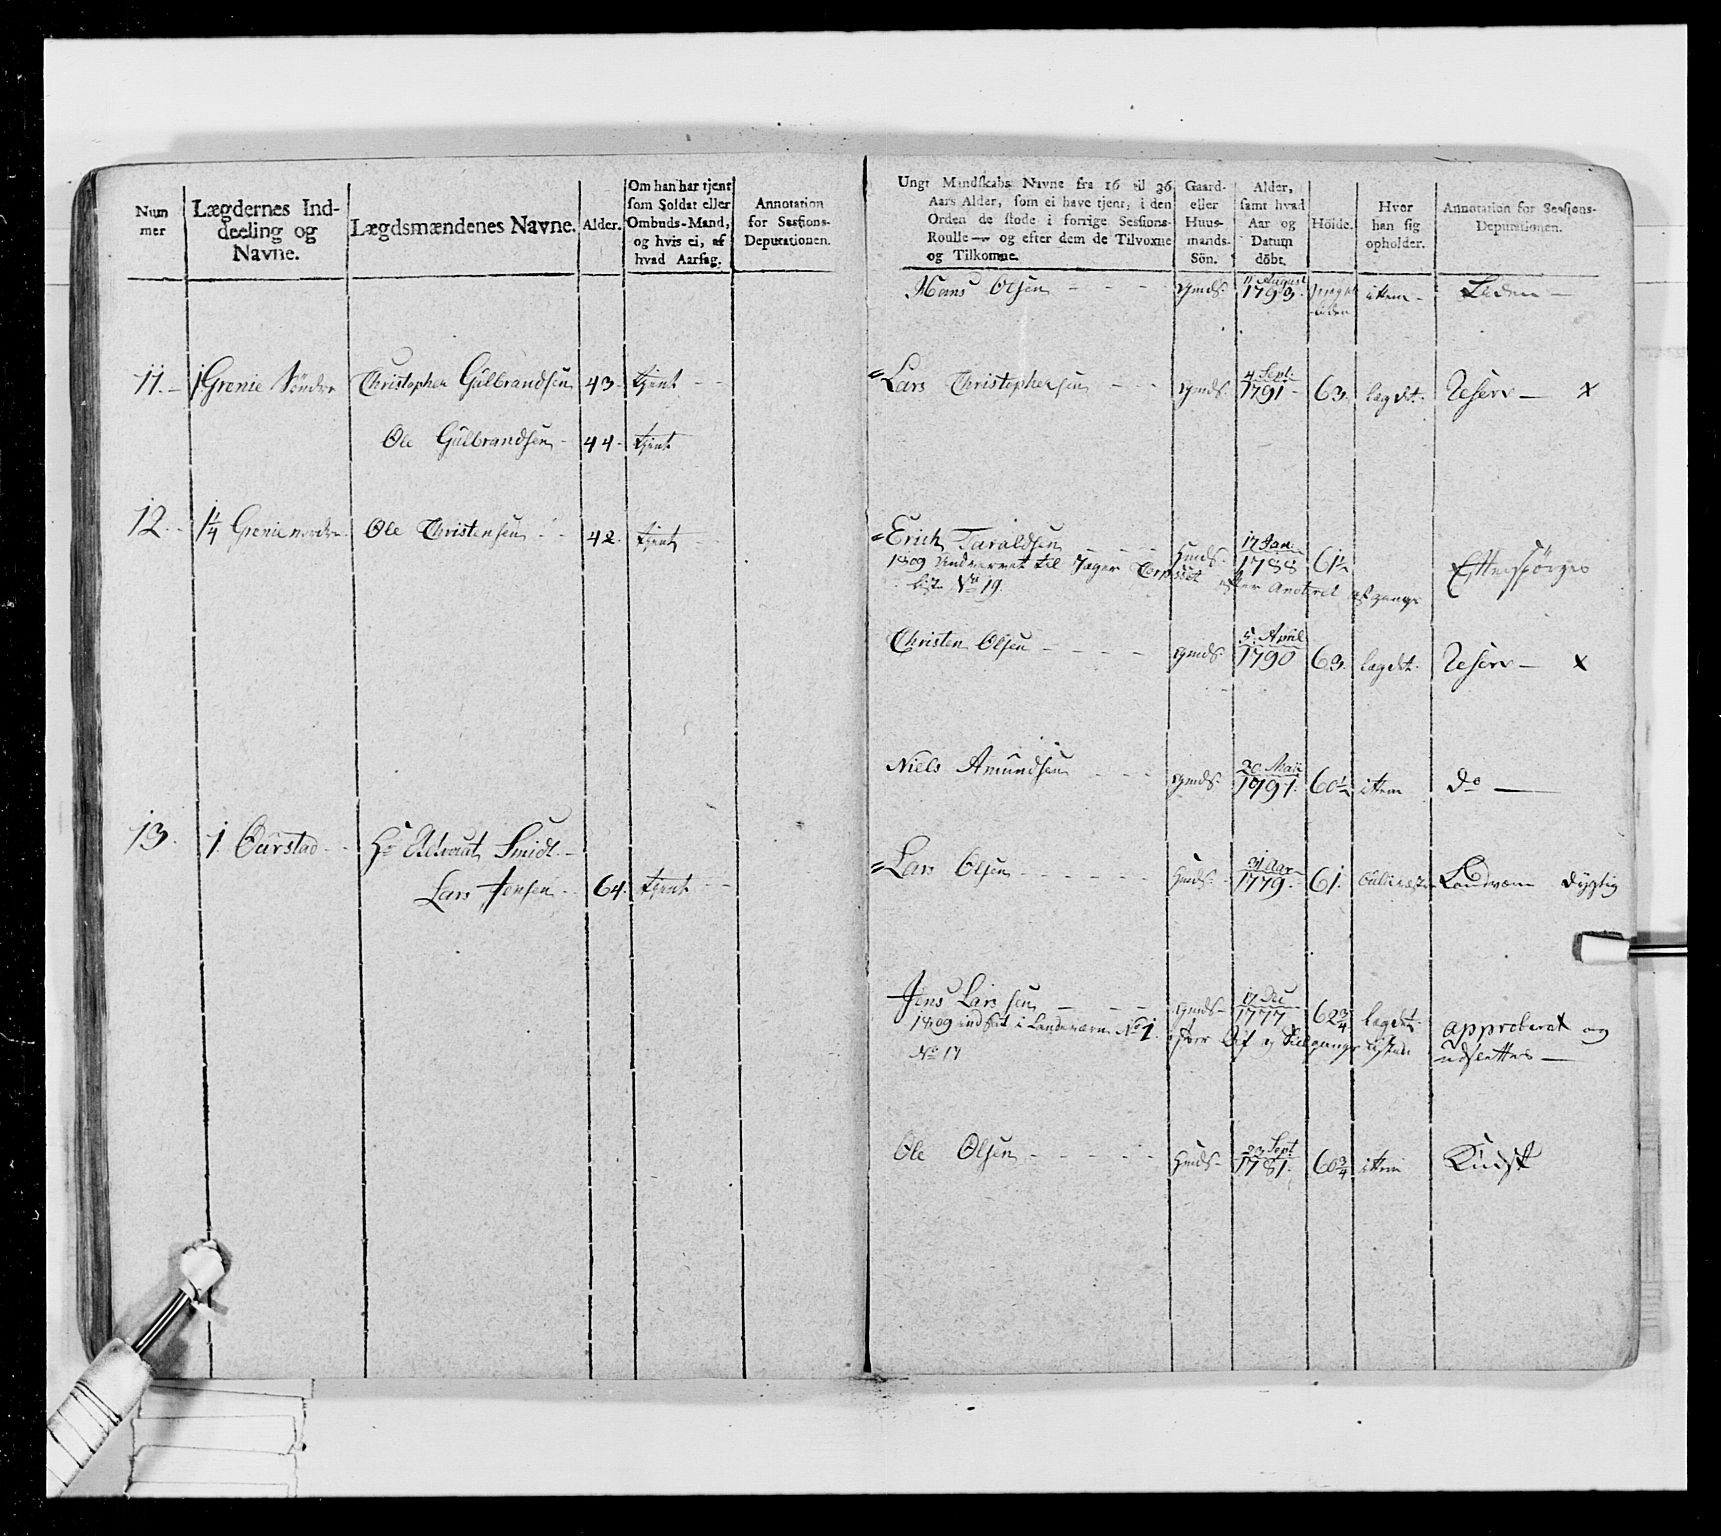 Num
mer
Lægdernes Ind-
deeling og
Navne.
Lægdsmændenes Navne.
Alder.
Om han har tjent
som Soldat eller
Ombuds-Mand,
og hvis ei, af
hvad Aarsag.
Annotation
for Sessions-
Deputationen.
11. 1 Grenie Söndre Christopher Gulbrandsen 43 tjent
Ole Gulbrandsen 44 tjent
12. 1/4 Grenie nordre Ole Christensen 42 tjent
13. 1 Ourstad Hr Smidt
Lars Jensen 64 tjent
Ungt Mandskabs Navne fra 16 til 36
Aars Alder, som ei have tjent, i den
Orden de stode i forrige Sessions-
Roulle — og efter dem de Tilvoxne
og Tilkomne.
Gaard-
eller
Huus-
mands-
Sön.
Alder,
samt hvad
Aar og
Datum
döbt.
Höide.
Hvor
han sig
opholder.
Annotation for Sessions-
Deputationen.
11 August
Hans Olsen gmds. 1793 item Liden
4 Sept.
Lars Christophersen gmds. 1791 63. lægdet Reserv x
17 Jan.
Erich Taraldsen Hmds. 1788 61½ Efterspörges
1809 Udnævnet til Jæger Corpset efter afgangs
liste No 19.
5. April
Christen Olsen gmds. 1790 63. lægdet. Reserv x
20 Maii
Niels Amundsen gmds. 1791. 60½ item do
31 Aar
Lars Olsen Hmds. 1779. 61. Landværn dygtig
17 Dec
Jens Larssen gmds 1777 62¾ lægdet approberet og
1809 indsat i Landeværn No 1. efter Af og Tilgangs Listen udslettes
No 17
23 Sept
Ole Olsen Hmds 1781. 60¾ item Kudsk